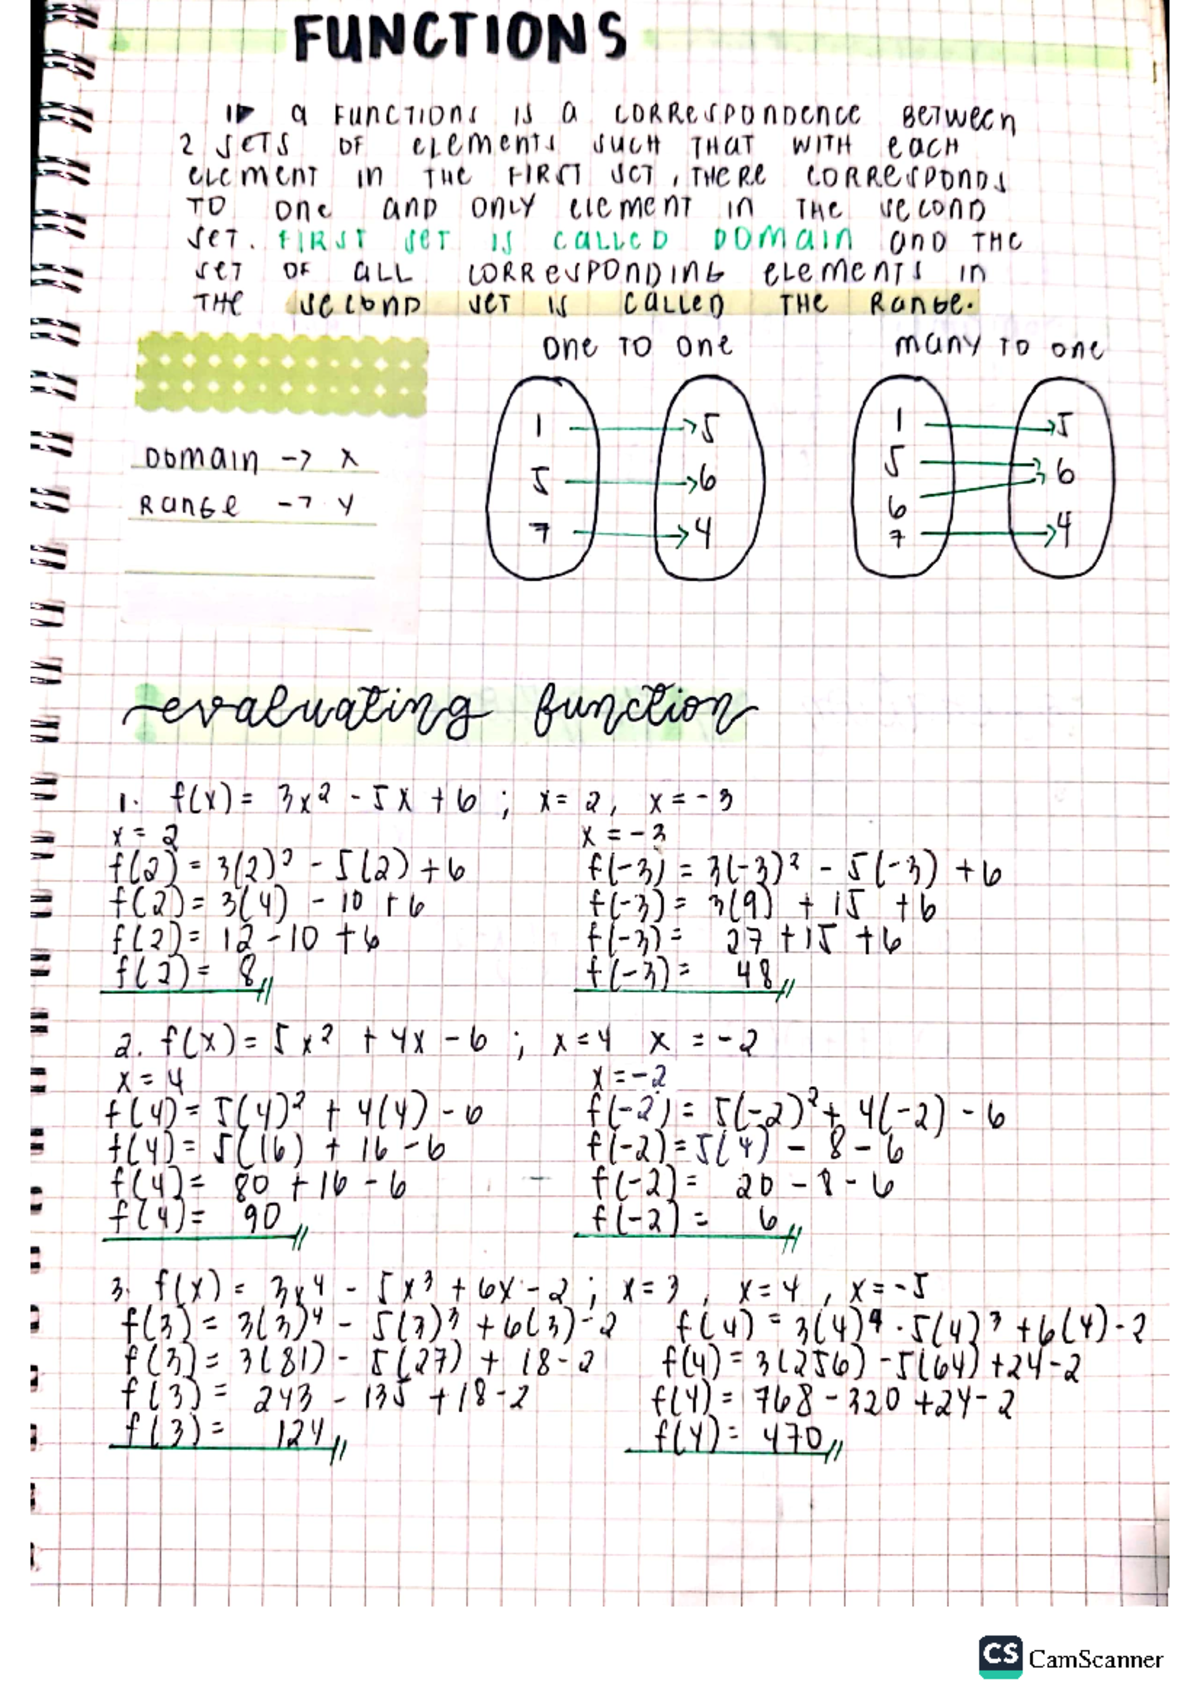 FUNCTIONS
A FUNCTIONS IS A CORRESPONDENCE BETWEEN
2 SETS OF ELEMENTS SUCH THAT WITH EACH
ELEMENT IN THE FIRST SET, THERE CORRESPONDS
TO ONE AND ONLY ELEMENT IN THE SECOND
SET. FIRST SET IS CALLED DOMAIN AND THE
SET OF ALL CORRESPONDING ELEMENTS IN
THE SECOND SET IS CALLED THE RANGE.
ONE TO ONE MANY TO ONE
1 → 5 1 → 5
DOMAIN → X
5 → 6 5 → 6
RANGE → Y
6
7 → 4 7 → 4
evaluating function
1. f(x) = 3x² - 5x + 6 ; x = 2, x = -3
x = 2 x = -3
f(2) = 3(2)² - 5(2) + 6 f(-3) = 3(-3)² - 5(-3) + 6
f(2) = 3(4) - 10 + 6 f(-3) = 3(9) + 15 + 6
f(2) = 12 - 10 + 6 f(-3) = 27 + 15 + 6
f(2) = 8 f(-3) = 48
2. f(x) = 5x² + 4x - 6 ; x = 4 x = -2
x = 4 x = -2
f(4) = 5(4)² + 4(4) - 6 f(-2) = 5(-2)² + 4(-2) - 6
f(4) = 5(16) + 16 - 6 f(-2) = 5(4) - 8 - 6
f(4) = 80 + 16 - 6 f(-2) = 20 - 8 - 6
f(4) = 90 f(-2) = 6
3. f(x) = 3x⁴ - 5x³ + 6x - 2 ; x = 3 , x = 4 , x = -5
f(3) = 3(3)⁴ - 5(3)³ + 6(3) - 2 f(4) = 3(4)⁴ - 5(4)³ + 6(4) - 2
f(3) = 3(81) - 5(27) + 18 - 2 f(4) = 3(256) - 5(64) + 24 - 2
f(3) = 243 - 135 + 18 - 2 f(4) = 768 - 320 + 24 - 2
f(3) = 124 f(4) = 470
CS CamScanner